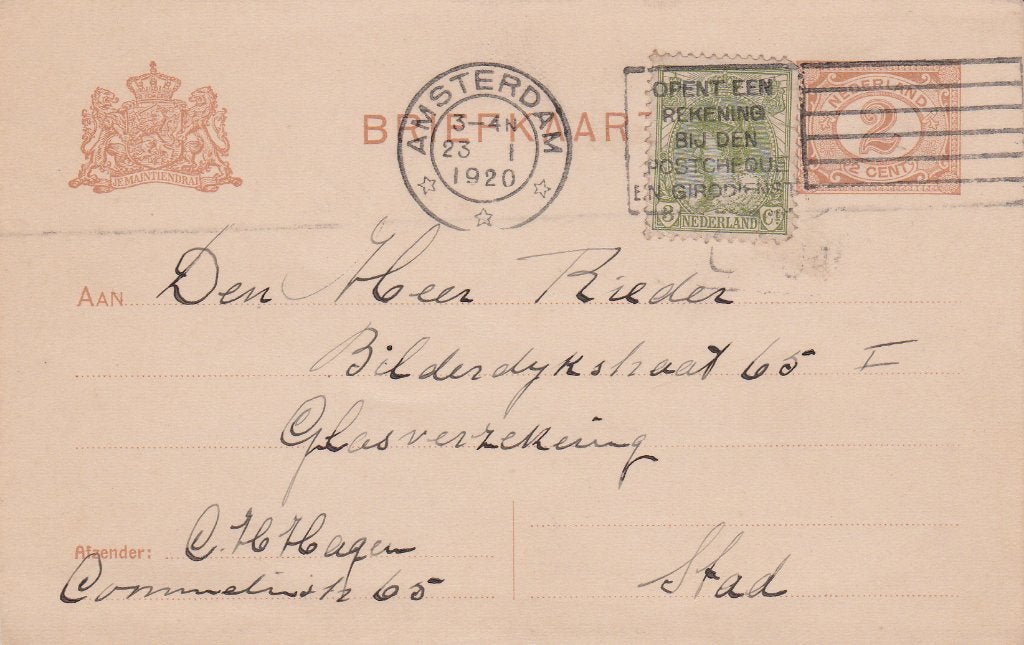 JE MAINTIENDRAI
AMSTERDAM
3-4N
23 I
1920
BRIEFKAART
OPENT EEN
REKENING
BIJ DEN
POSTCHEQUE
EN GIRODIENST
3 NEDERLAND Ct
NEDERLAND
2
2 CENT
AAN Den Heer Rieder
Bilderdykstraat 65 I
Glasverzekering
Afzender: C. H Hagen
Commelinstr 65
Stad